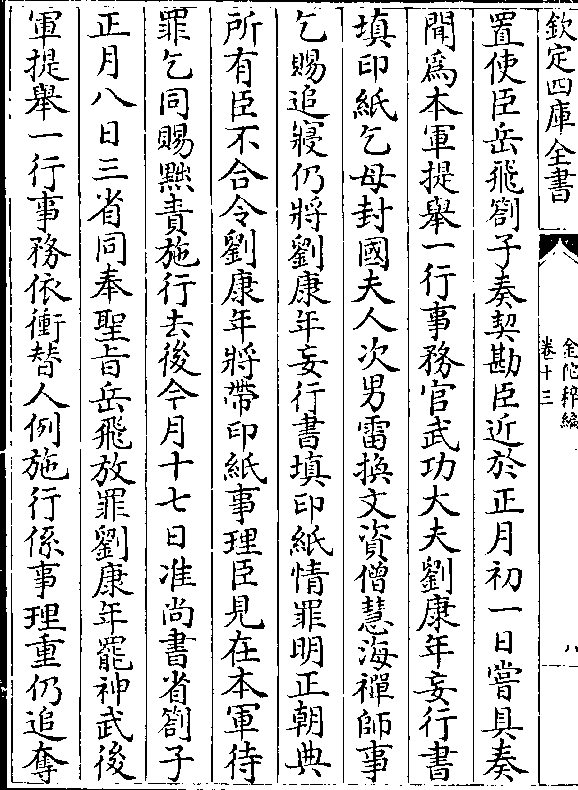 欽定四庫全書
金佗稡編
卷十三
八
置使臣岳飛劄子奏契勘臣近於正月初一日嘗具奏
聞爲本軍提舉一行事務官武功大夫劉康年妄行書
填印紙乞母封國夫人次男雷換文資僧慧海禪師事
乞賜追寢仍將劉康年妄行書填印紙情罪明正朝典
所有臣不合令劉康年將帶印紙事理臣見在本軍待
罪乞同賜黜責施行去後今月十七日准尚書省劄子
正月八日三省同奉聖旨岳飛放罪劉康年罷神武後
軍提舉一行事務依衝替人例施行係事理重仍追奪